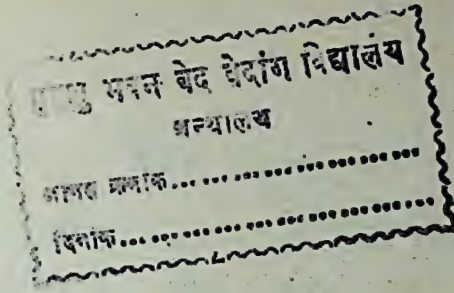 मुमुक्षु भवन वेद वेदांग विद्यालय
ग्रन्थालय
आगत क्रमांक....................................
दिनांक..........................................